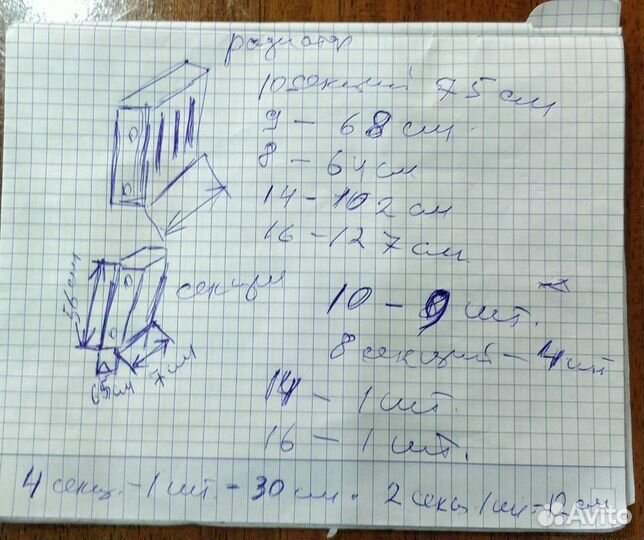 радиатор
10 секций 75 см
9 - 68 см.
8 - 64 см
14 - 102 см
16 - 127 см.
секции
56 см
65 см
7 см
10 - 9 шт.
8 секций - 4 шт
14 - 1 шт.
16 - 1 шт.
4 секц. - 1 шт. - 30 см. 2 секц. 1 шт = 12 см
Avito